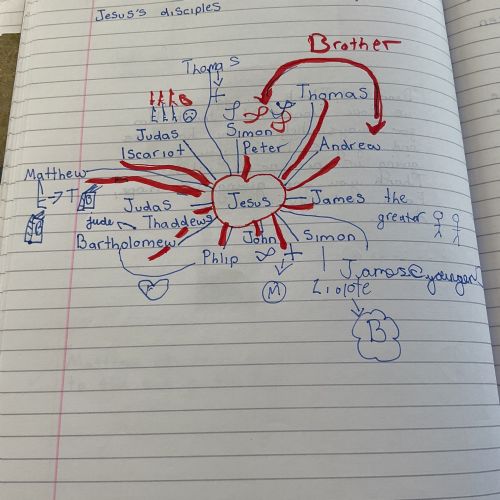 Jesus's disciples
Brother
Thomas
Thomas
Judas
Iscariot
Simon
Peter
Andrew
Matthew
T
Judas
Jude
Thaddews
Jesus
James the
greater
Bartholomew
Phlip
John
Simon
James
younger
M
Liolote
B